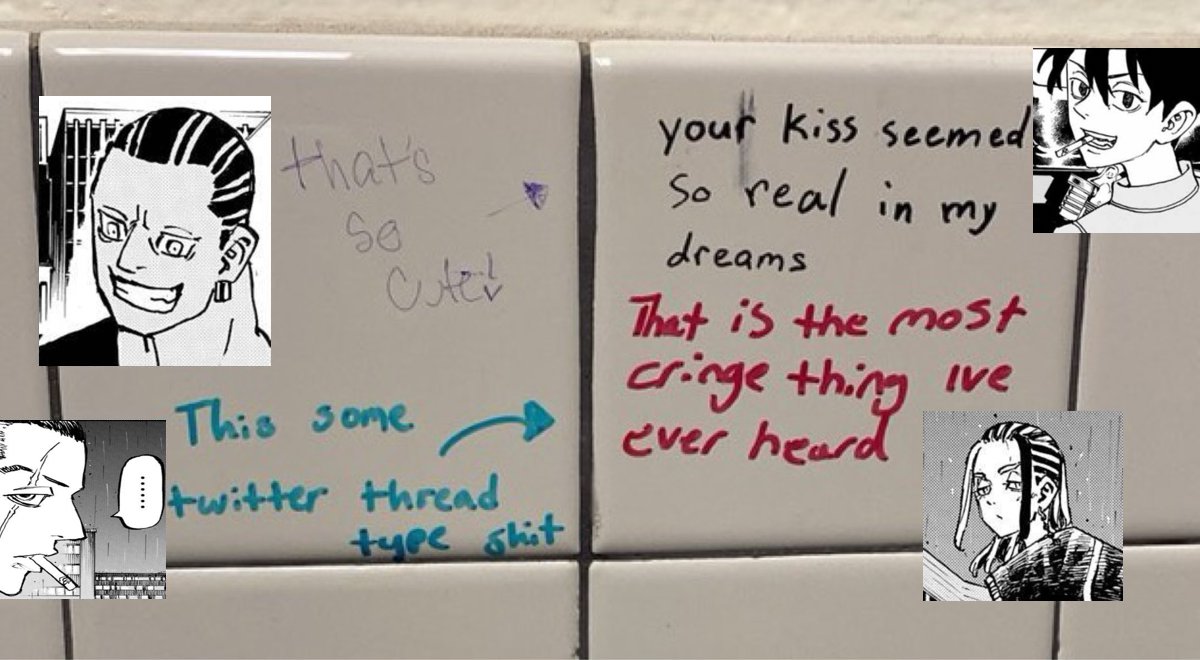 that's
so
cute!
This some
twitter thread
type shit
.....
your kiss seemed
so real in my
dreams
That is the most
cringe thing Ive
ever heard